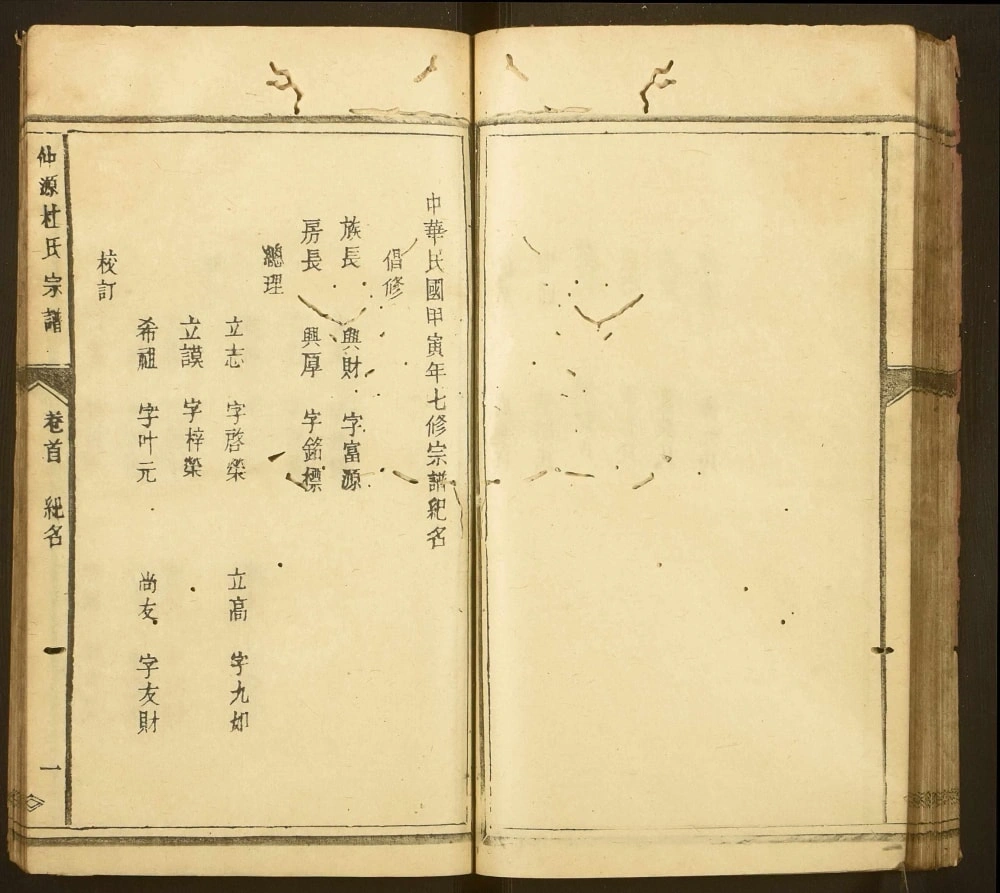 中華民國甲寅年七修宗譜紀名
倡修
族長 興財 字富源
房長 興厚 字銘標
總理
立志 字啓榮 立高 字九如
立謨 字梓榮
希祖 字叶元 尚友 字友財
校訂
仙源杜氏宗譜 卷首 紀名 一